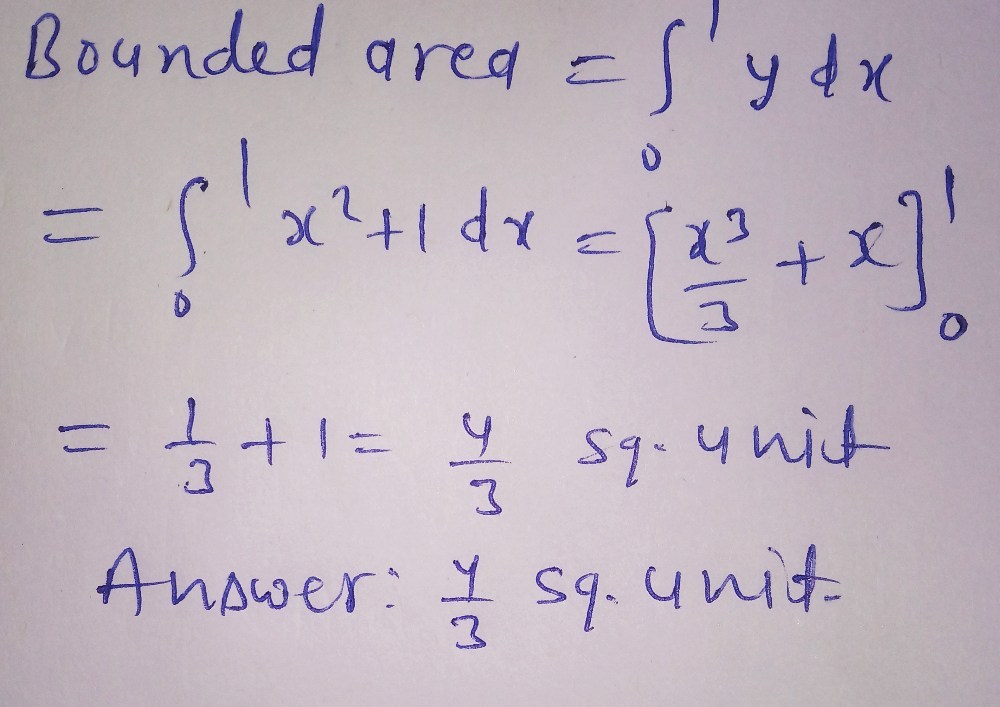 Bounded area = ∫₀¹ y dx
= ∫₀¹ x²+1 dx = [x³/3 + x]₀¹
= 1/3 + 1 = 4/3 sq. unit
Answer: 4/3 sq. unit.